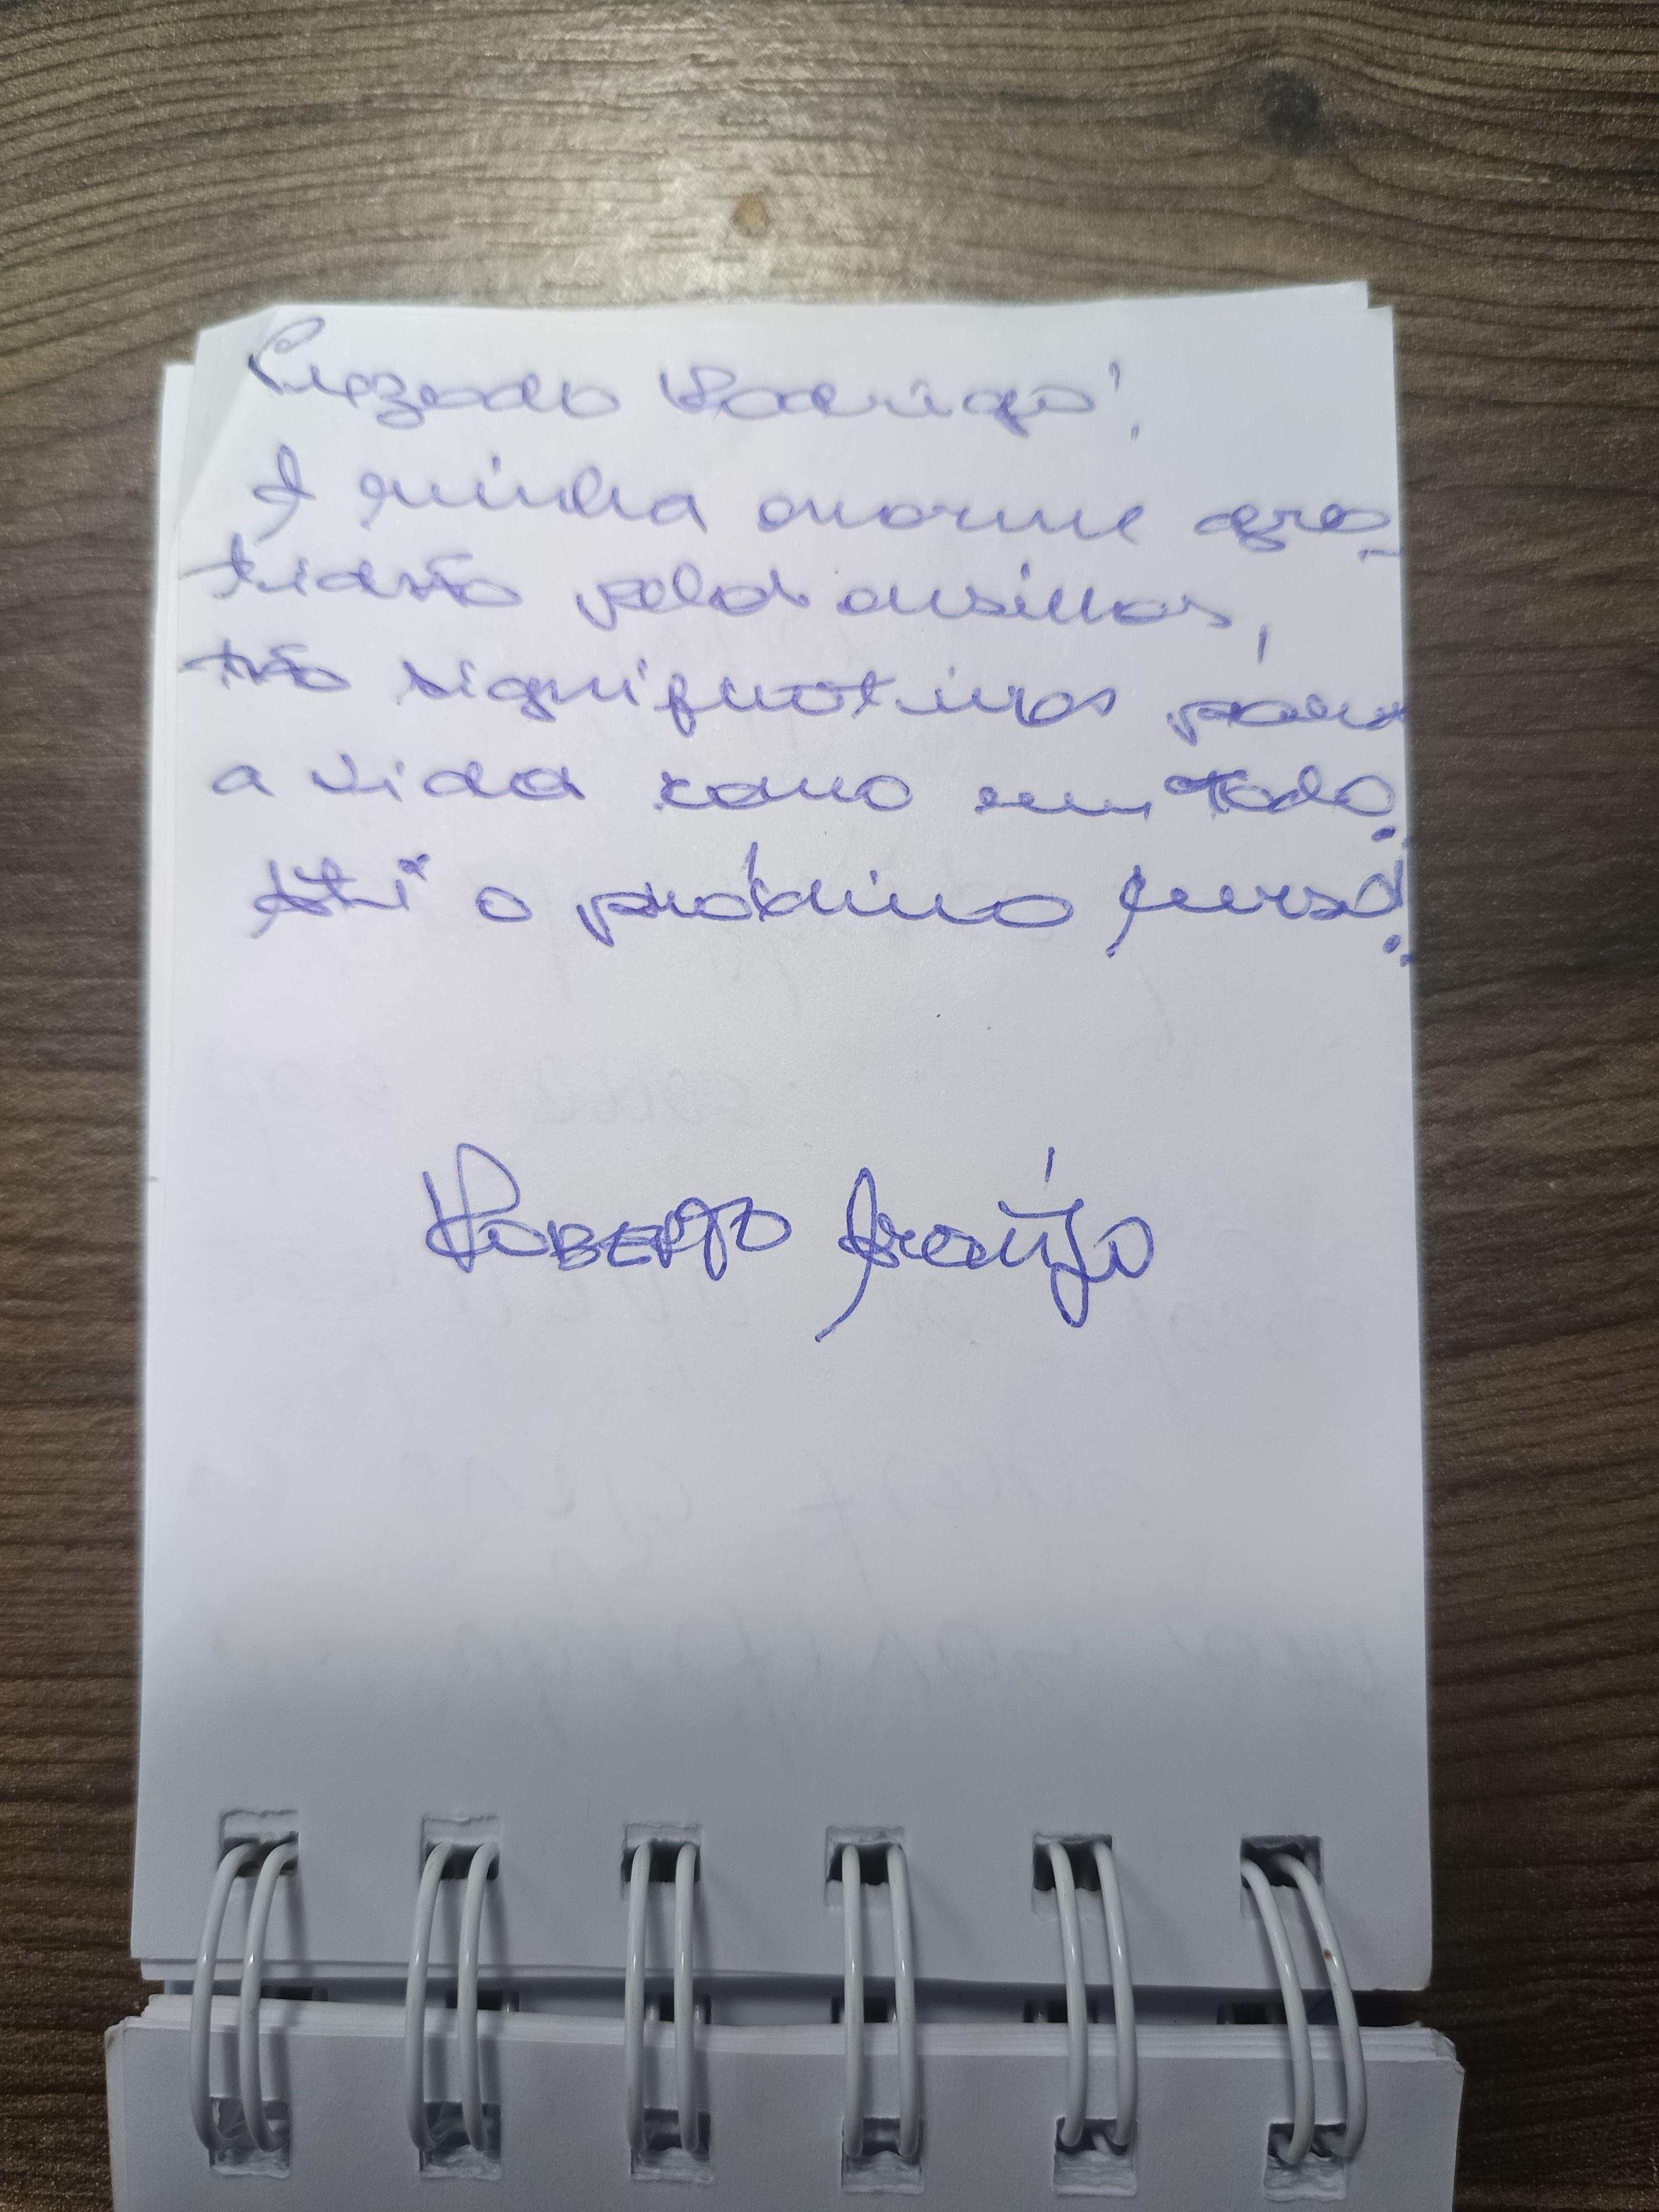 Prezado Rodrigo,
A minha enorme gra-
tidão pelos ensinos,
tão significativos para
a vida como um todo.
Até o próximo curso!
ROBERTO Araújo